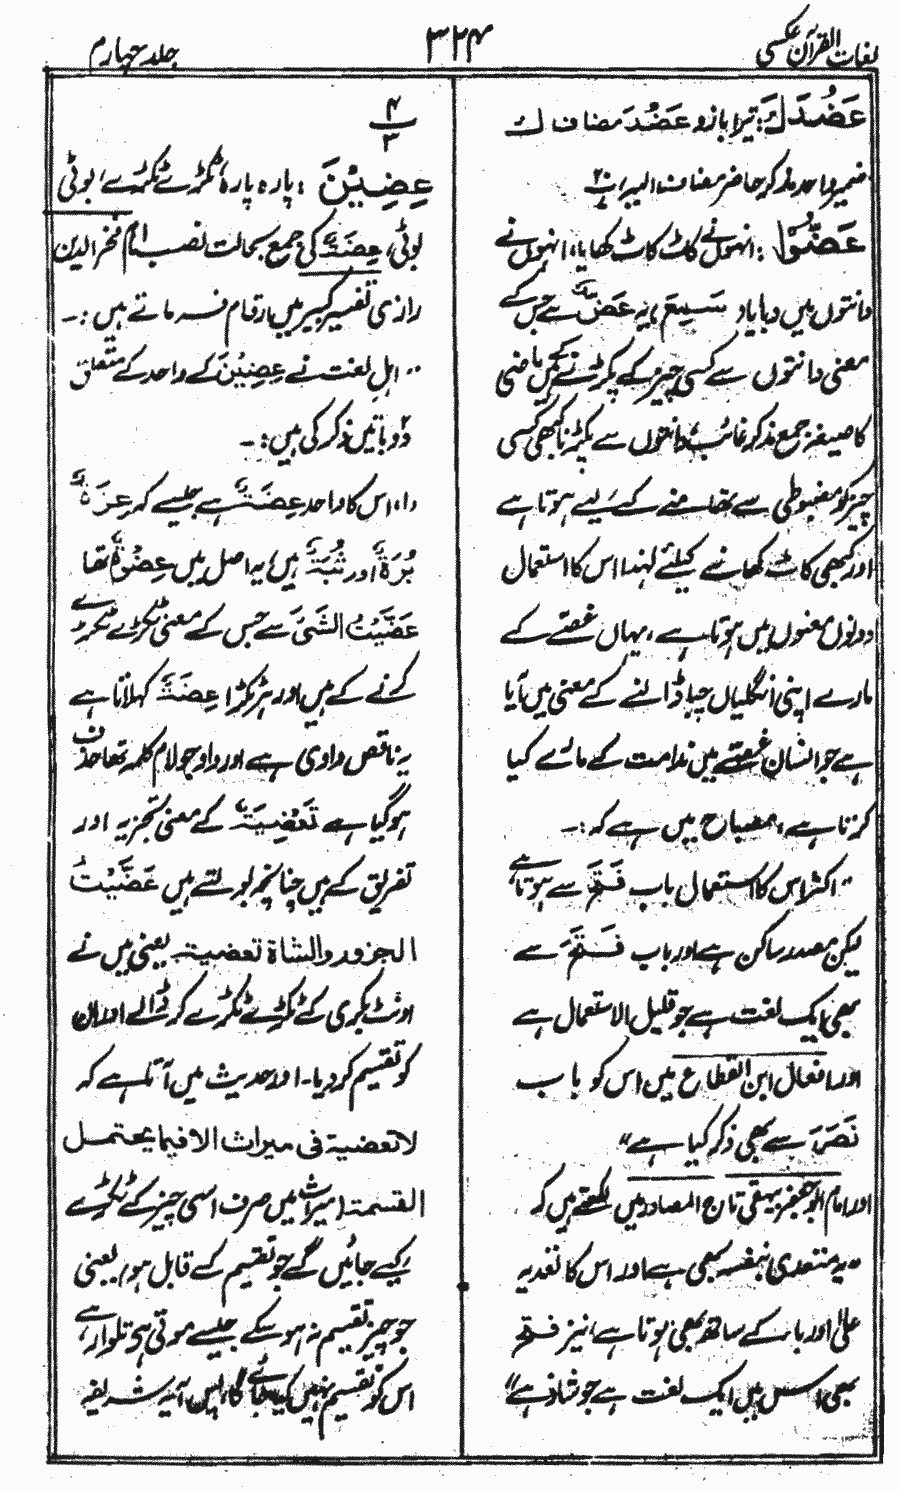 لغات القرآن عکسی
۳۲۴
جلد چہارم
عَضُدَكَ: تیرا بازو عَضُدَ مضاف ك
ضمیر واحد مذکر حاضر مضاف الیہ
عَضُّوْا: انہوں نے کاٹ کاٹ کھایا، انہوں نے
دانتوں میں دبایا، سَمِعَ یہ عَضٌّ سے جس کے
معنی دانتوں سے کسی چیز کے پکڑنے کے ہیں ماضی
کا صیغہ جمع مذکر غائب، دانتوں سے پکڑنا کبھی کسی
چیز کو مضبوطی سے تھامنے کے لیے ہوتا ہے
اور کبھی کاٹ کھانے کیلئے لہٰذا اس کا استعمال
دونوں معنوں میں ہوتا ہے، یہاں غصّے کے
مارے اپنی انگلیاں چبا ڈالنے کے معنی میں آیا
ہے جو انسان غصّے میں ندامت کے مارے کیا
کرتا ہے، مصباح میں ہے کہ:۔
" اکثر اس کا استعمال باب فَتَحَ سے ہوتا ہے
لیکن مصدر ساکن ہے اور باب فَتَحَ سے
بھی ایک لغت ہے جو قلیل الاستعمال ہے
اور افعال ابن القطاع میں اس کو باب
نَصَرَ سے بھی ذکر کیا ہے"
اور امام ابو جعفر بیہقی تاج المصادر میں لکھتے ہیں کہ
" یہ متعدی بنفسہ بھی ہے اور اس کا تعدیہ
علیٰ اور باء کے ساتھ بھی ہوتا ہے، نیز فتح
بھی اس میں ایک لغت ہے جو شاذ ہے"
۴
۳
عِضِیْنَ: پارہ پارہ، ٹکڑے ٹکڑے، بوٹی
بوٹی، عِضَةٌ کی جمع بحالت نصب امام فخر الدین
رازی تفسیر کبیر میں ارقام فرماتے ہیں:۔
" اہل لغت نے عِضِیْنَ کے واحد کے متعلق
دو باتیں ذکر کی ہیں:۔
(۱) اس کا واحد عِضَةٌ ہے جیسے کہ عِزَةٌ
بُرَةٌ اور ثُبَةٌ ہیں، یہ اصل میں عِضْوَةٌ تھا
عَضَّیْتُ الشَّیْءَ سے جس کے معنی ٹکڑے ٹکڑے
کرنے کے ہیں اور ہر ٹکڑا عِضَةٌ کہلاتا ہے
یہ ناقص واوی ہے اور واو جو لام کلمہ تھا حذف
ہو گیا ہے تَعْضِیَةٌ کے معنی تجزیہ اور
تفریق کے ہیں چنانچہ بولتے ہیں عَضَّیْتُ
الجزور والشاة تعضیة یعنی میں نے
اونٹ بکری کے ٹکڑے ٹکڑے کر ڈالے اور ان
کو تقسیم کر دیا۔ اور حدیث میں آتا ہے کہ
لا تعضیة فی میراث الا فیما یحتمل
القسمة (میراث میں صرف اسی چیز کے ٹکڑے
کیے جائیں گے جو تقسیم کے قابل ہو) یعنی
جو چیز تقسیم نہ ہو سکے جیسے موتی ہے، تلوار ہے،
اس کو تقسیم نہیں کیا جائے گا، پس آیہ شریفہ